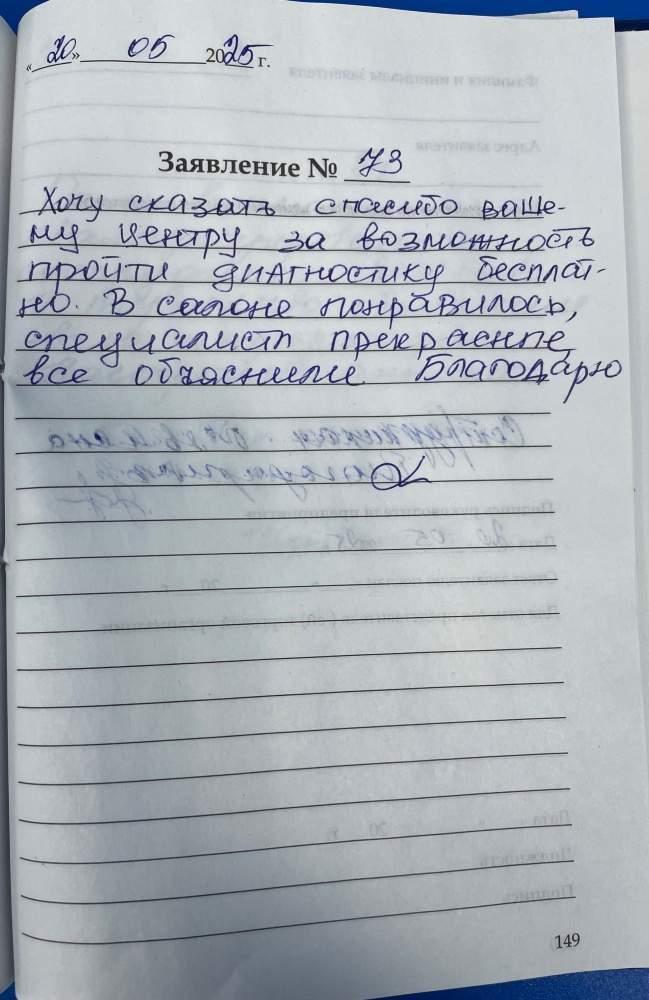 «20» 05 2025 г.
Заявление № 73
Хочу сказать спасибо ваше-
му центру за возможность
пройти диагностику бесплат-
но. В салоне понравилось,
специалист прекрасне
все объяснили. Благодарю
149